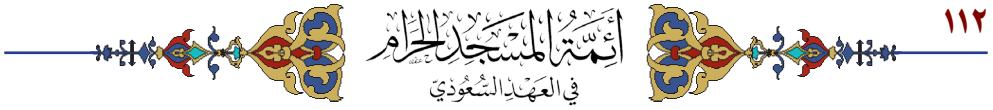 ١١٢
أَئِمَّةُ المَسْجِدِ الحَرَامِ
فِي العَهْدِ السُّعُودِيّ